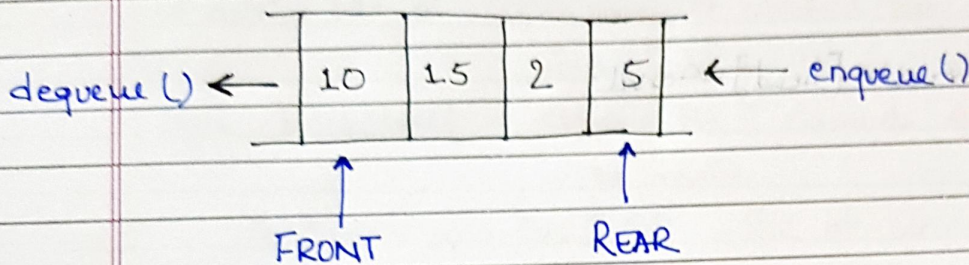 dequeue () ← 10 1.5 2 5 ← enqueue ()
FRONT REAR